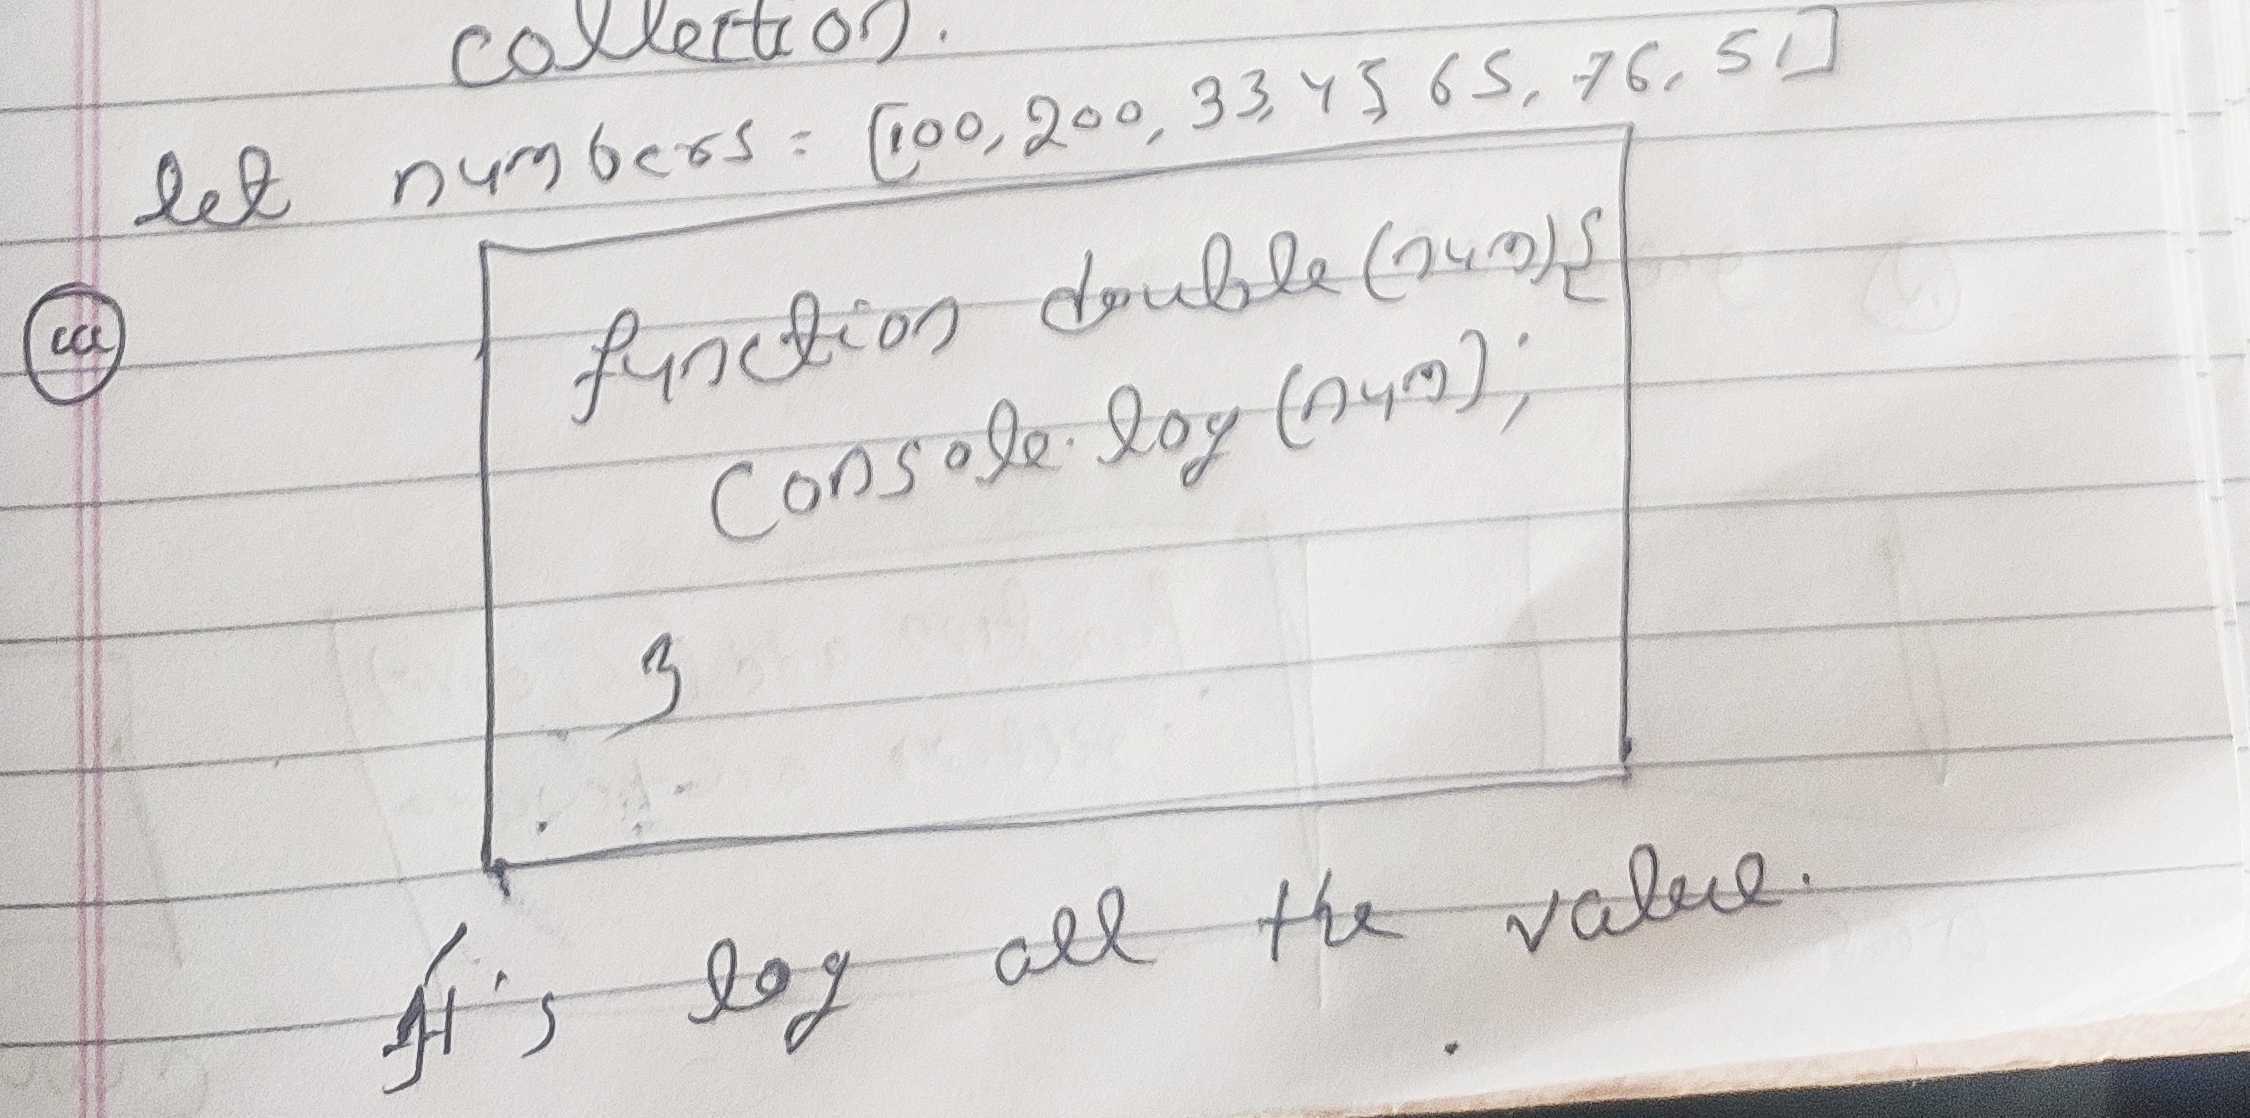 collection.
let numbers = [100, 200, 33, 45 65, 76, 51]
function double(num){
console.log(num);
}
It's log all the value.